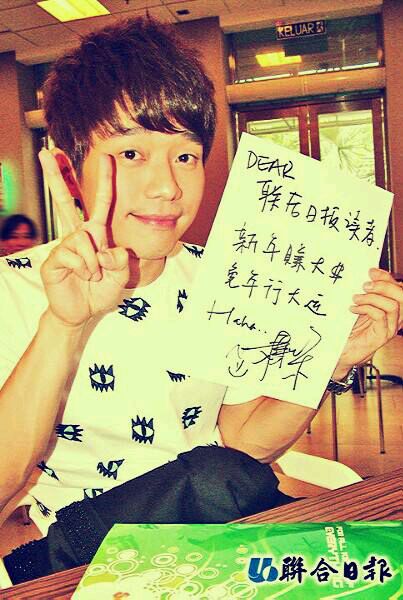 KELUAR
DEAR
联合日报读者.
新年赚大$
兔年行大运
Haha..
聯合日報